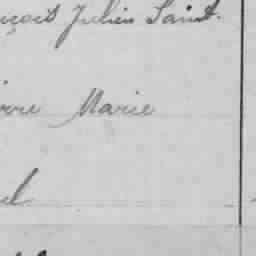 nçois Julien Saint.
erre Marie
el